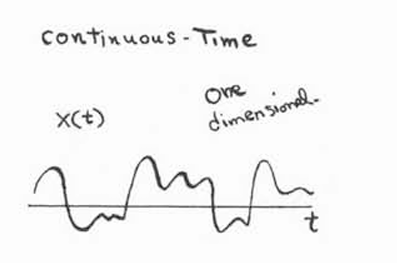 Continuous-Time
One
X(t)
dimensional.
t